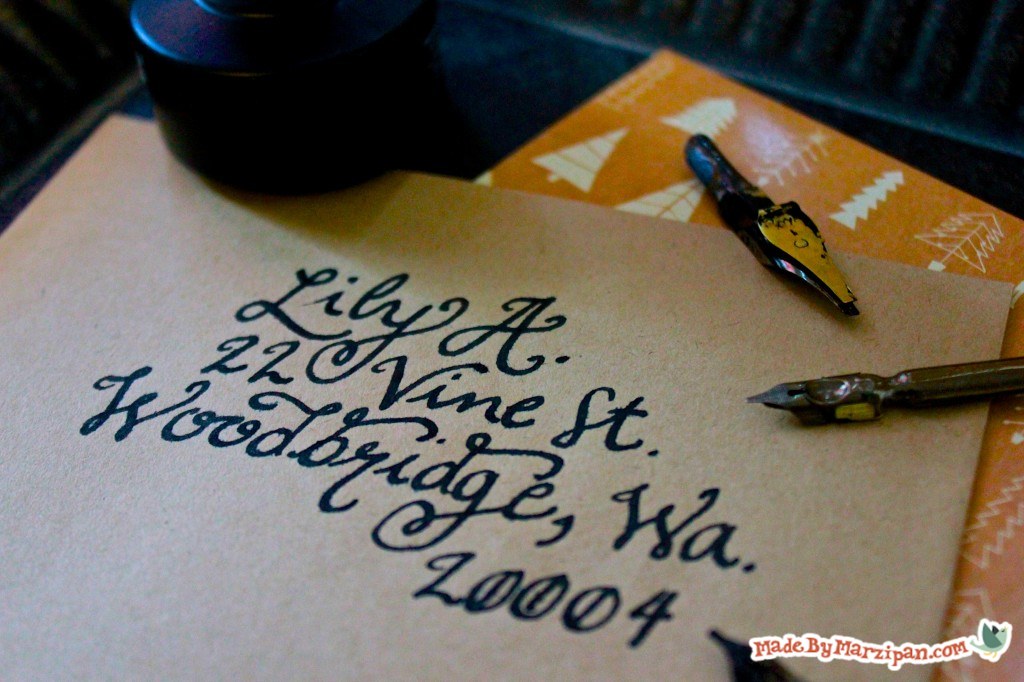 Lily A.
22 Vine St.
Woodbridge, Wa.
20004
MadeByMarzipan.com